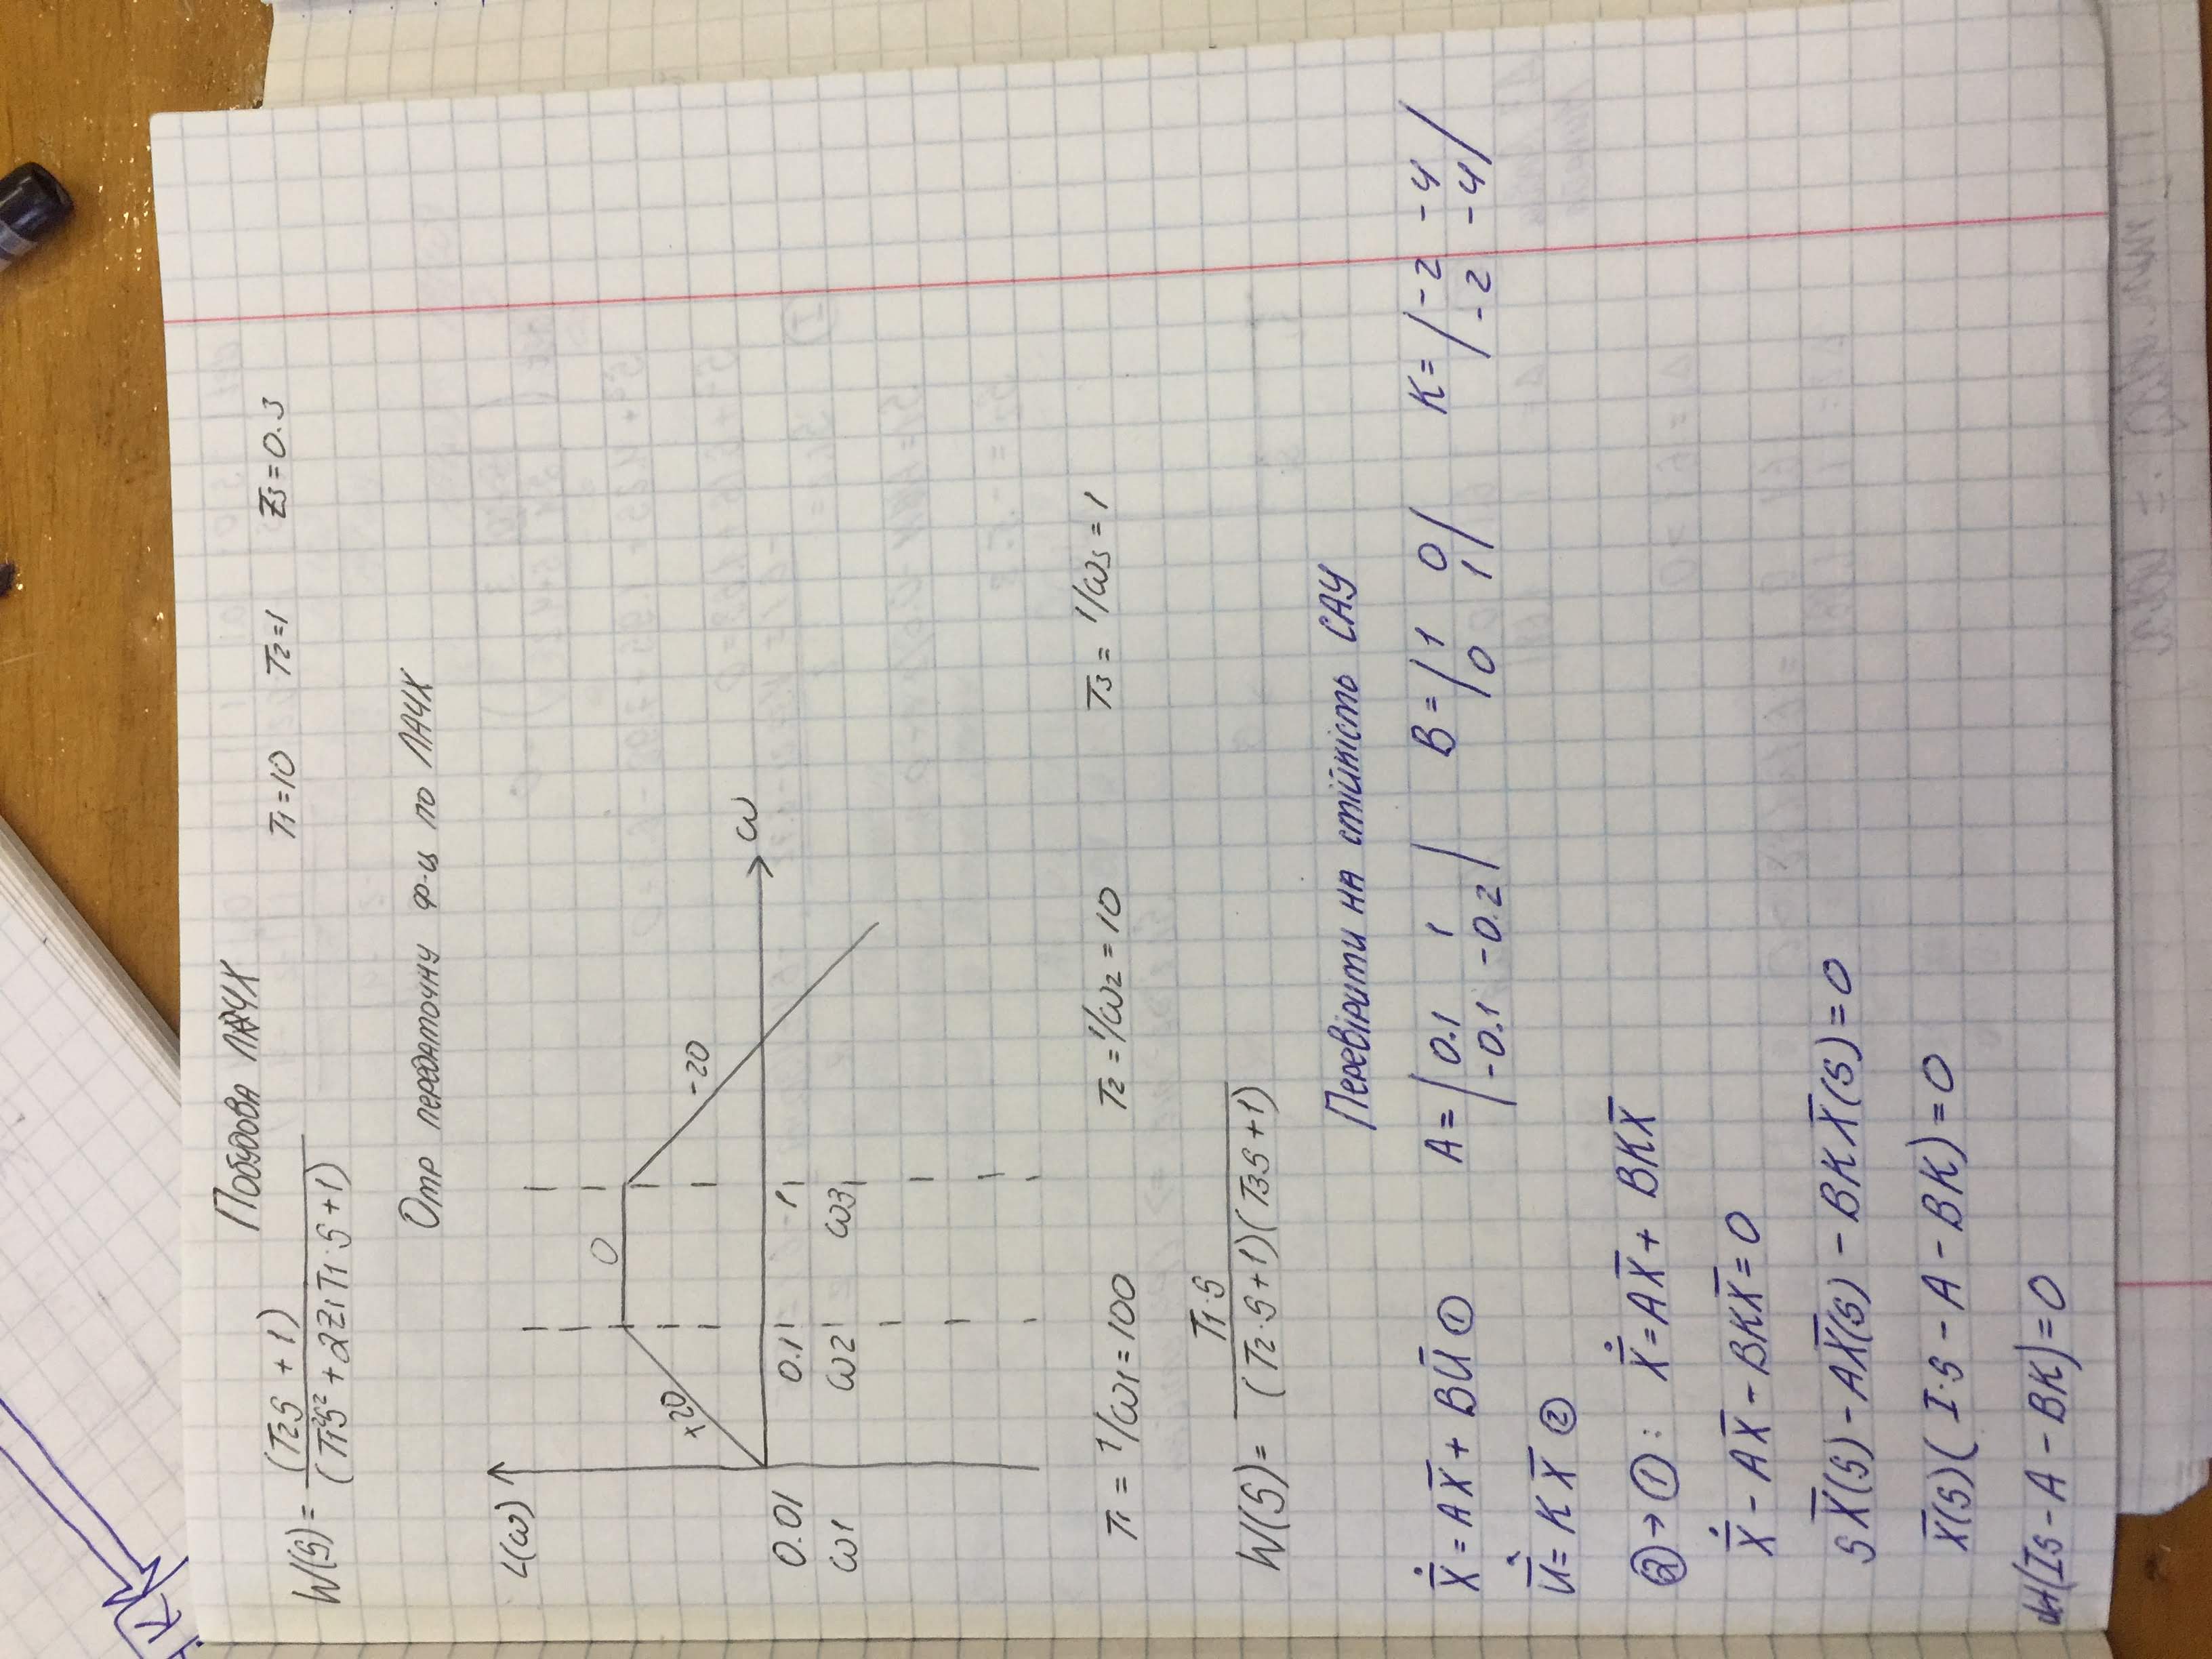 К
Побудова ЛАЧХ
W(S) = (T2S + 1) / (T1²S² + 2Z1T1·S + 1)
T1=10 T2=1 Z3=0.3
Отр передаточну ф-ц по ЛАЧХ
L(ω)
0
+20
-20
ω
0.01 0.1 1
ω1 ω2 ω3
T1 = 1/ω1 = 100 T2 = 1/ω2 = 10 T3 = 1/ω3 = 1
W(S) = T1·S / (T2·S+1)(T3S+1)
Перевірити на стійкість САУ
Ẋ̄ = AX̄ + BŪ ① A = | 0.1 1 | B = | 1 0 | K = | -2 -4 |
| -0.1 -0.2 | | 0 1 | | -2 -4 |
Ū = KX̄ ②
② → ① : Ẋ̄ = AX̄ + BKX̄
Ẋ̄ - AX̄ - BKX̄ = 0
SX̄(S) - AX̄(S) - BKX̄(S) = 0
X̄(S)( I·S - A - BK) = 0
det(IS - A - BK) = 0